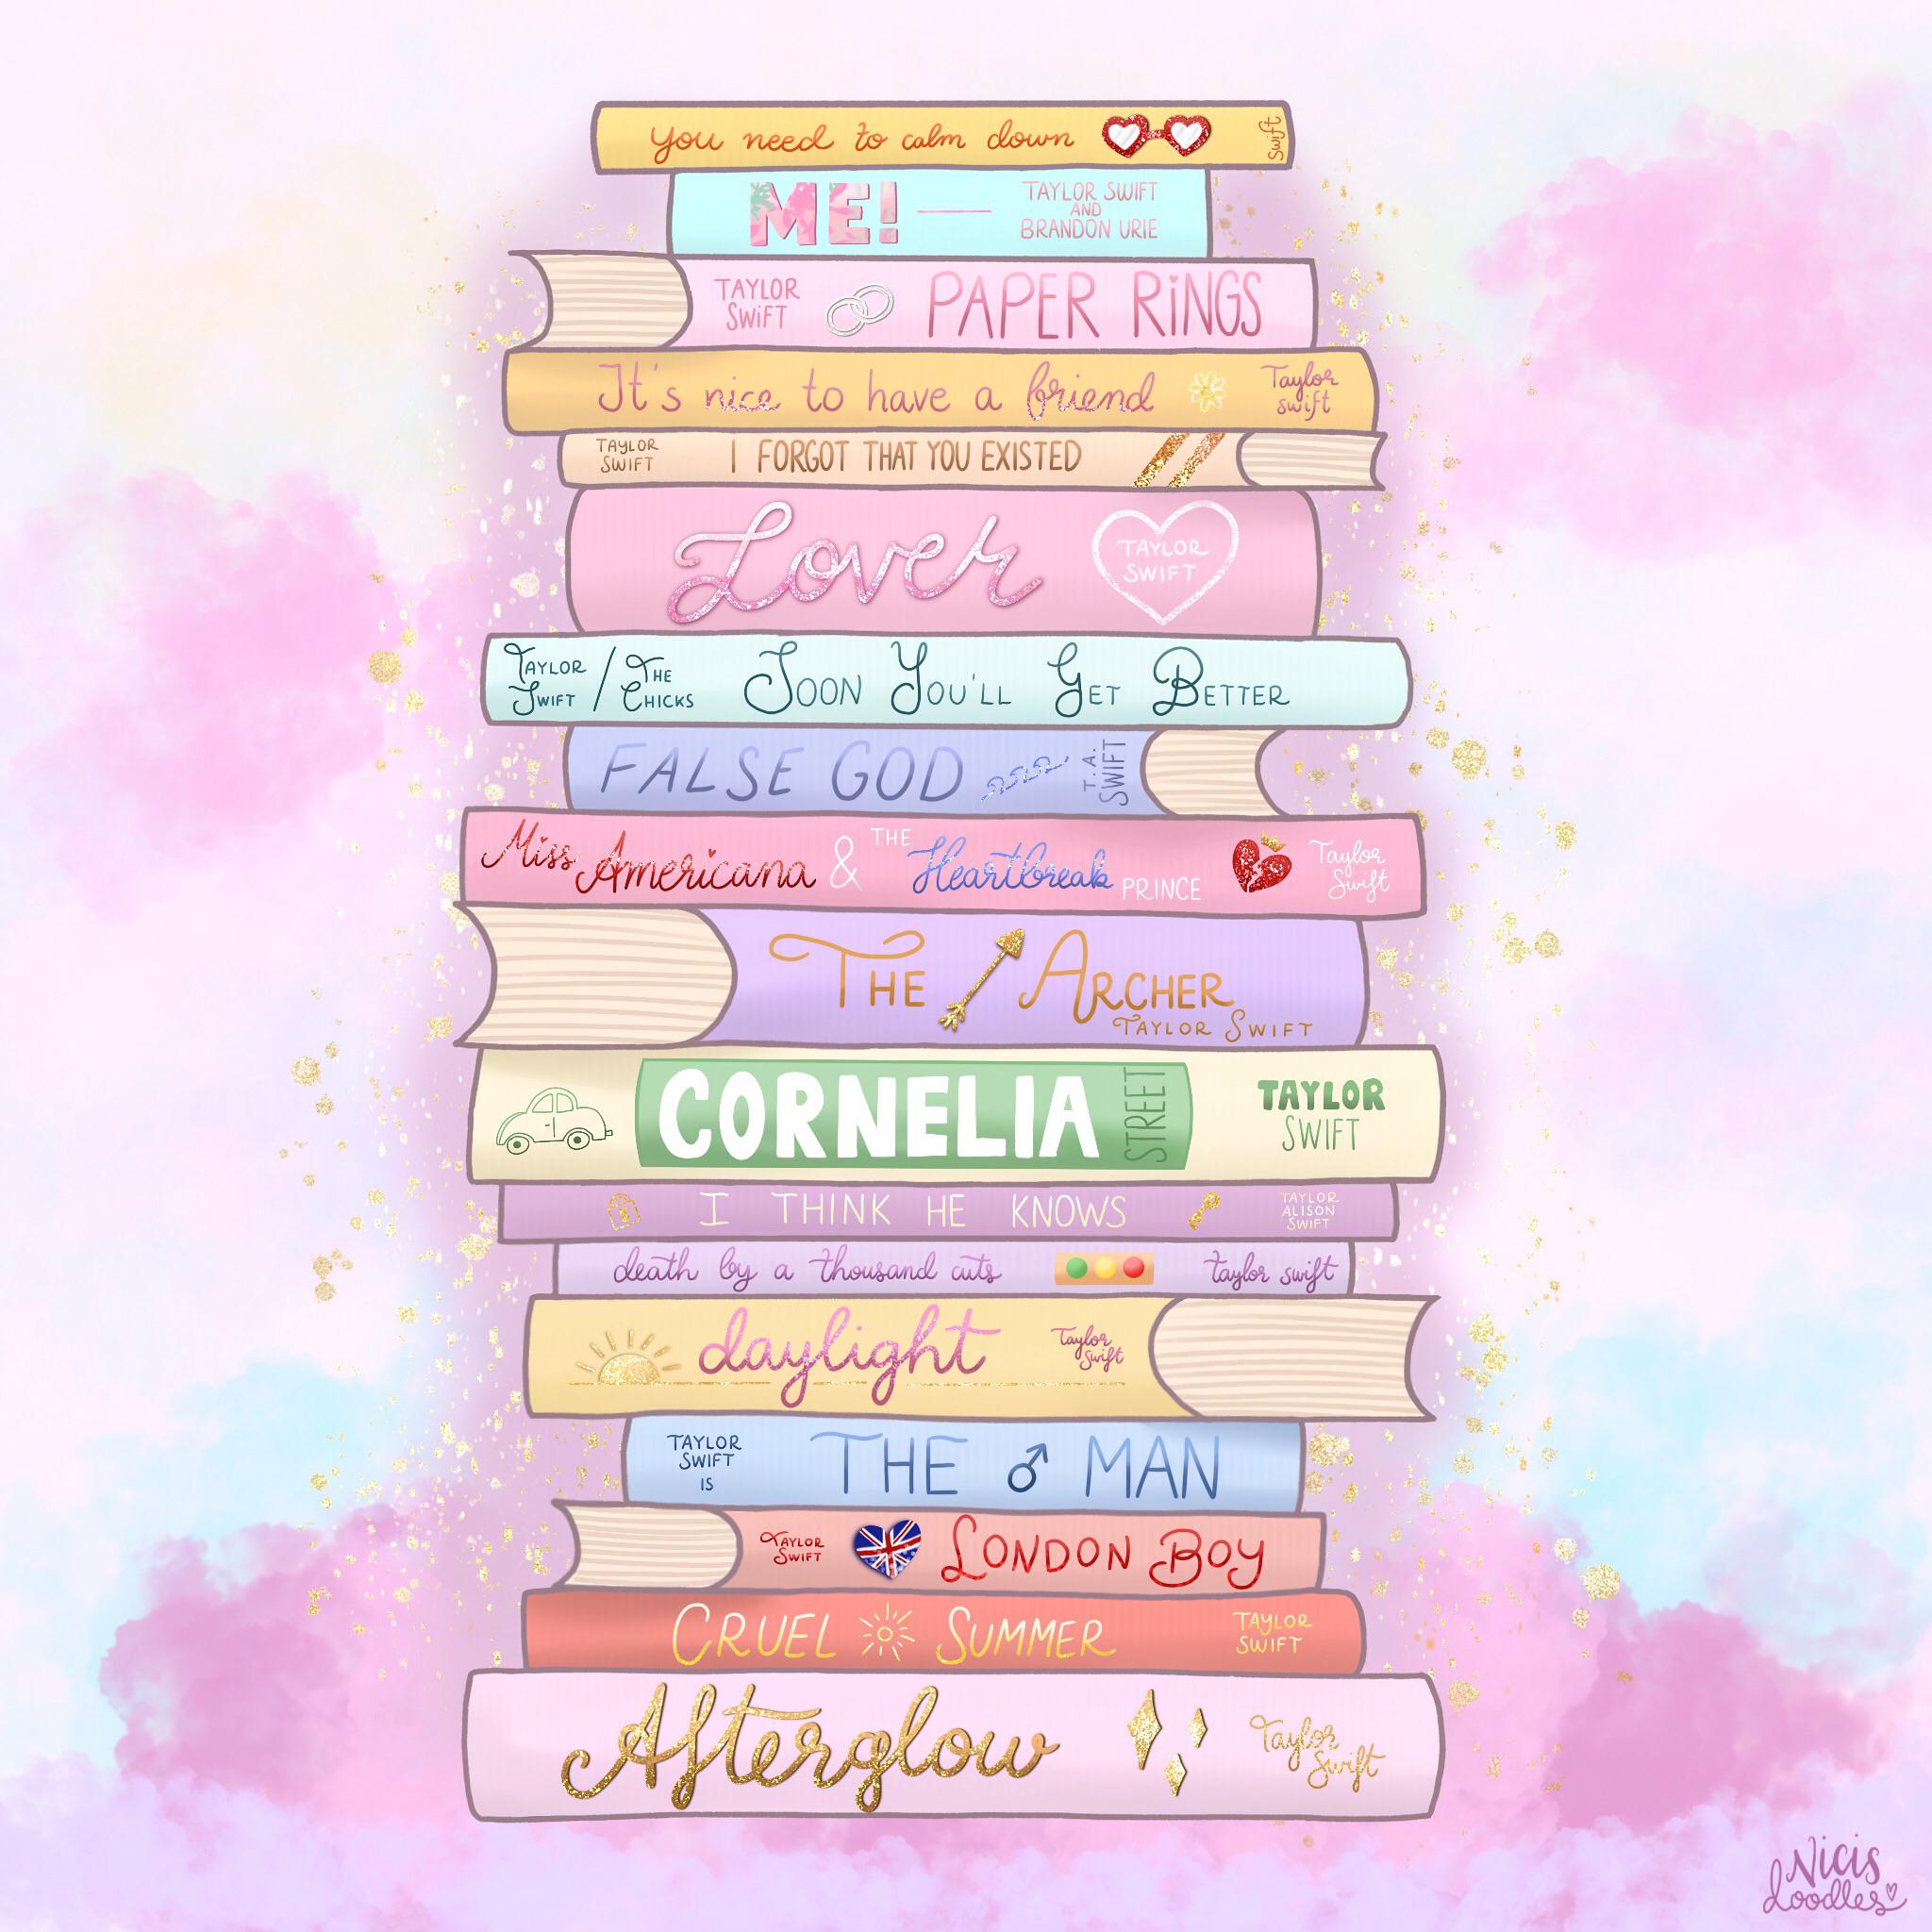 you need to calm down Swift
ME! TAYLOR SWIFT
AND
BRANDON URIE
TAYLOR
SWIFT PAPER RINGS
It's nice to have a friend Taylor
swift
TAYLOR
SWIFT I FORGOT THAT YOU EXISTED
Lover TAYLOR
SWIFT
TAYLOR
SWIFT / THE
CHICKS SOON YOU'LL GET BETTER
FALSE GOD T.A.
SWIFT
Miss Americana & THE Heartbreak PRINCE Taylor
Swift
THE ARCHER
TAYLOR SWIFT
CORNELIA STREET TAYLOR
SWIFT
I THINK HE KNOWS TAYLOR
ALISON
SWIFT
death by a thousand cuts taylor swift
daylight Taylor
Swift
TAYLOR
SWIFT
IS THE ♂ MAN
TAYLOR
SWIFT LONDON BOY
CRUEL SUMMER TAYLOR
SWIFT
Afterglow Taylor
Swift
Nicis
doodles